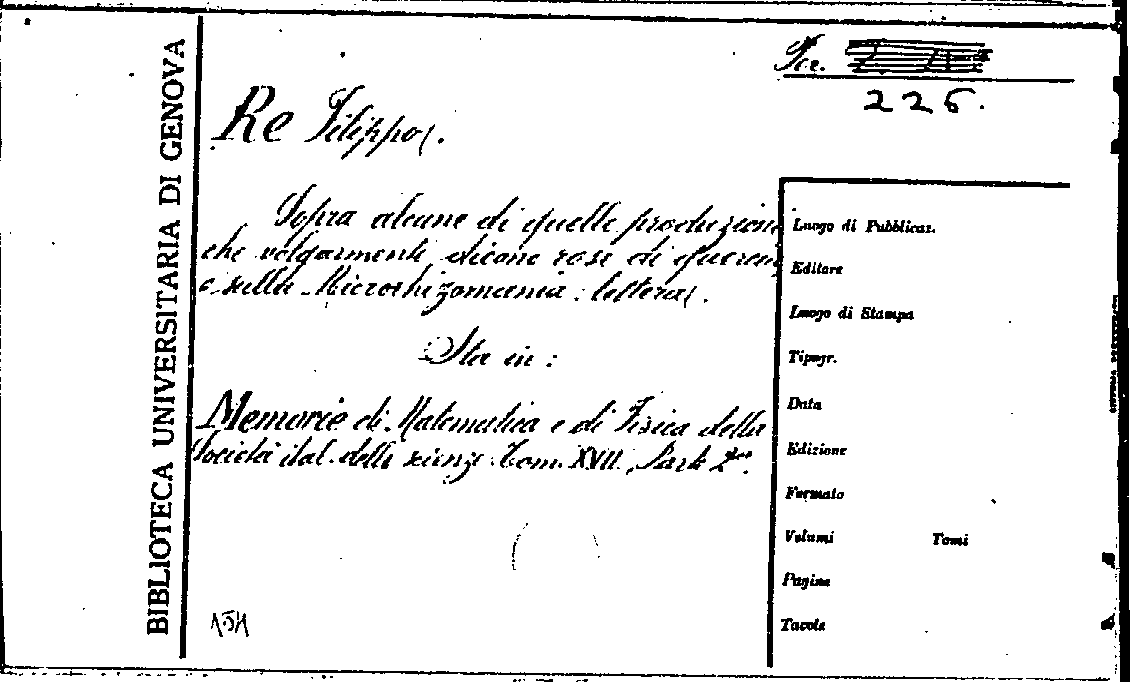 Per.
226.
Re Filippo.
Sopra alcune di quelle produzioni
che volgarmente dicono rose di querce
e sulla Microrhizomania: lettera.
Sta in:
Memorie di Matematica e di Fisica della
Società ital. delle scienze Tom. XVII. Parte 2ª.
BIBLIOTECA UNIVERSITARIA DI GENOVA
Luogo di Pubblicaz.
Editore
Luogo di Stampa
Tipogr.
Data
Edizione
Formato
Volumi Tomi
Pagine
Tavole